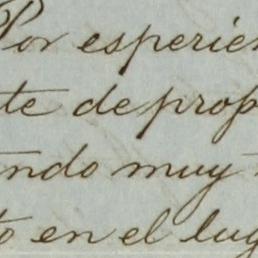 Por esperien
te de prop
ndo muy
to en el lug